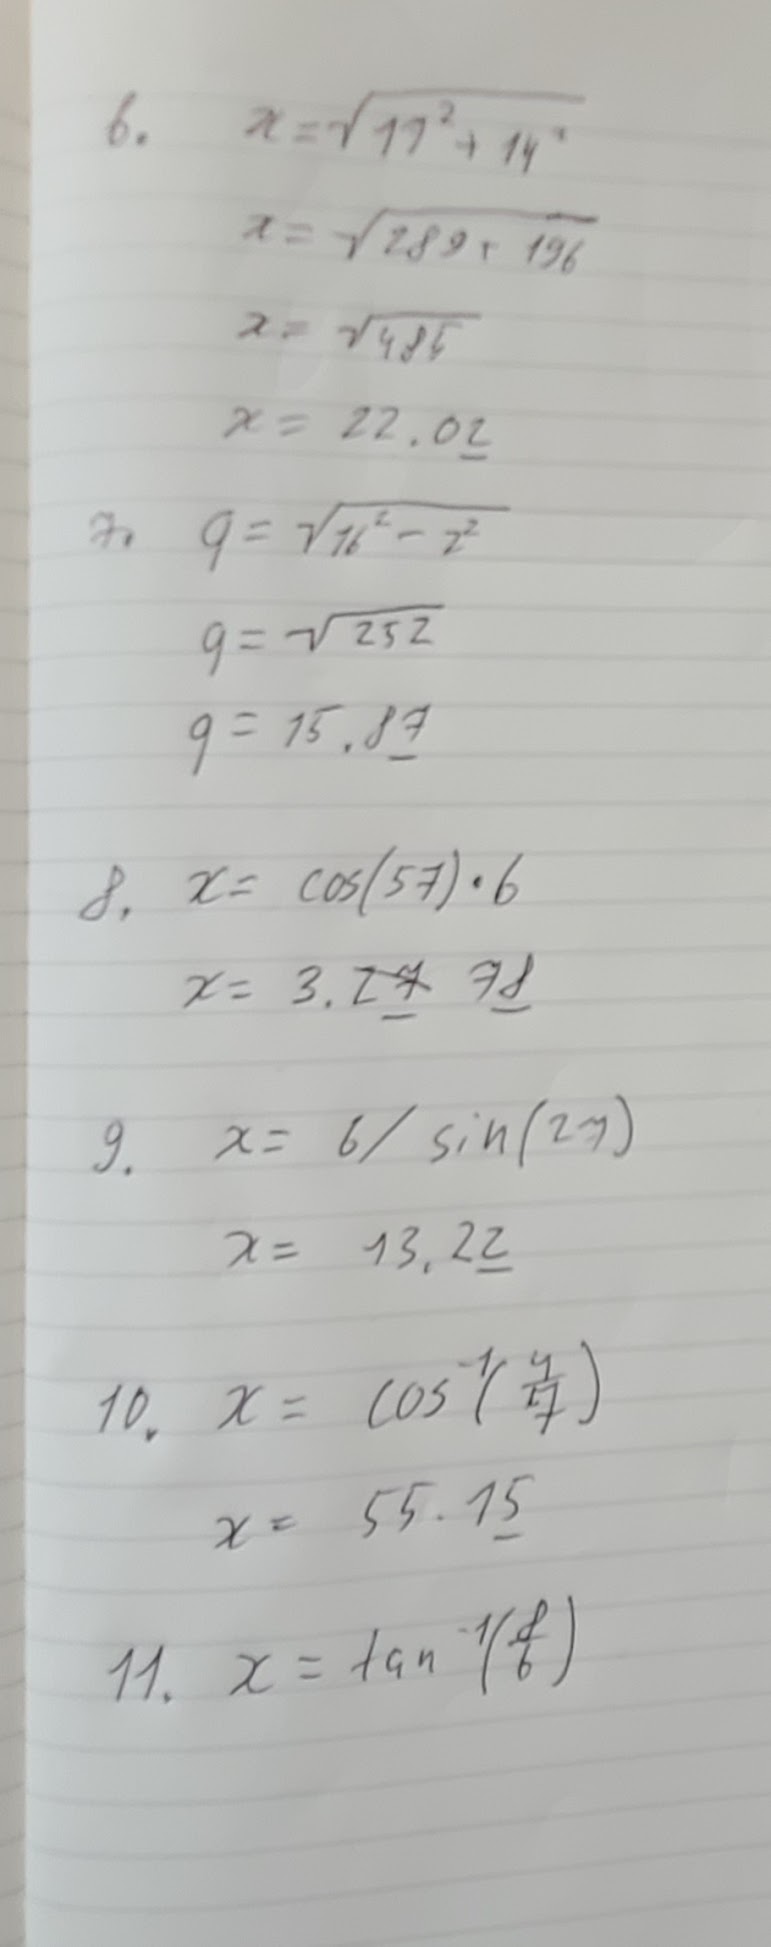 6. x=√17²+14²
x=√289+196
x=√485
x= 22.02
7. q=√16²-2²
q=√252
q= 15.87
8. x= cos(57)•6
x= 3.27 78
9. x= 6/sin(27)
x= 13,22
10. x= cos⁻¹(4/17)
x= 55.15
11. x= tan⁻¹(8/6)